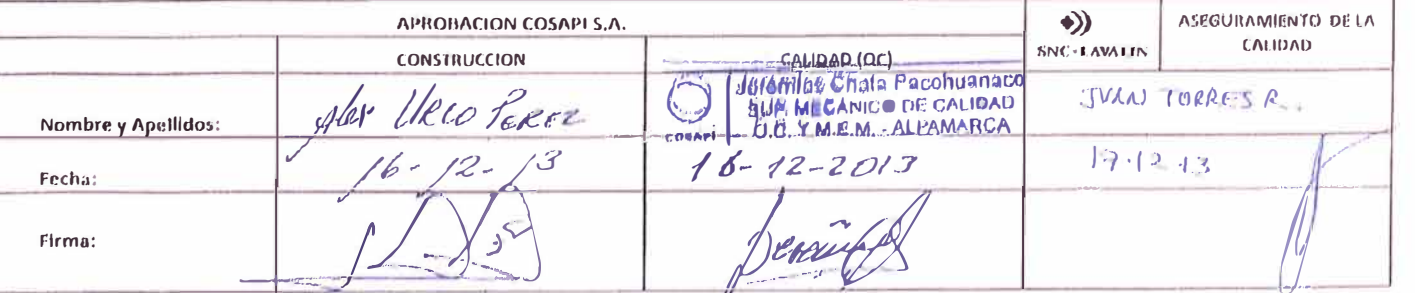 APROBACION COSAPI S.A.
SNC • LAVALIN
ASEGURAMIENTO DE LA
CALIDAD
CONSTRUCCION
CALIDAD (QC)
Nombre y Apellidos:
URCO PEREZ
Chala Pacohuanaco
SUP. MECANICO DE CALIDAD
O.C. Y M.E.M. - ALPAMARCA
COSAPI
JUAN TORRES R.
Fecha:
16-12-13
16-12-2013
17.12.13
Firma: